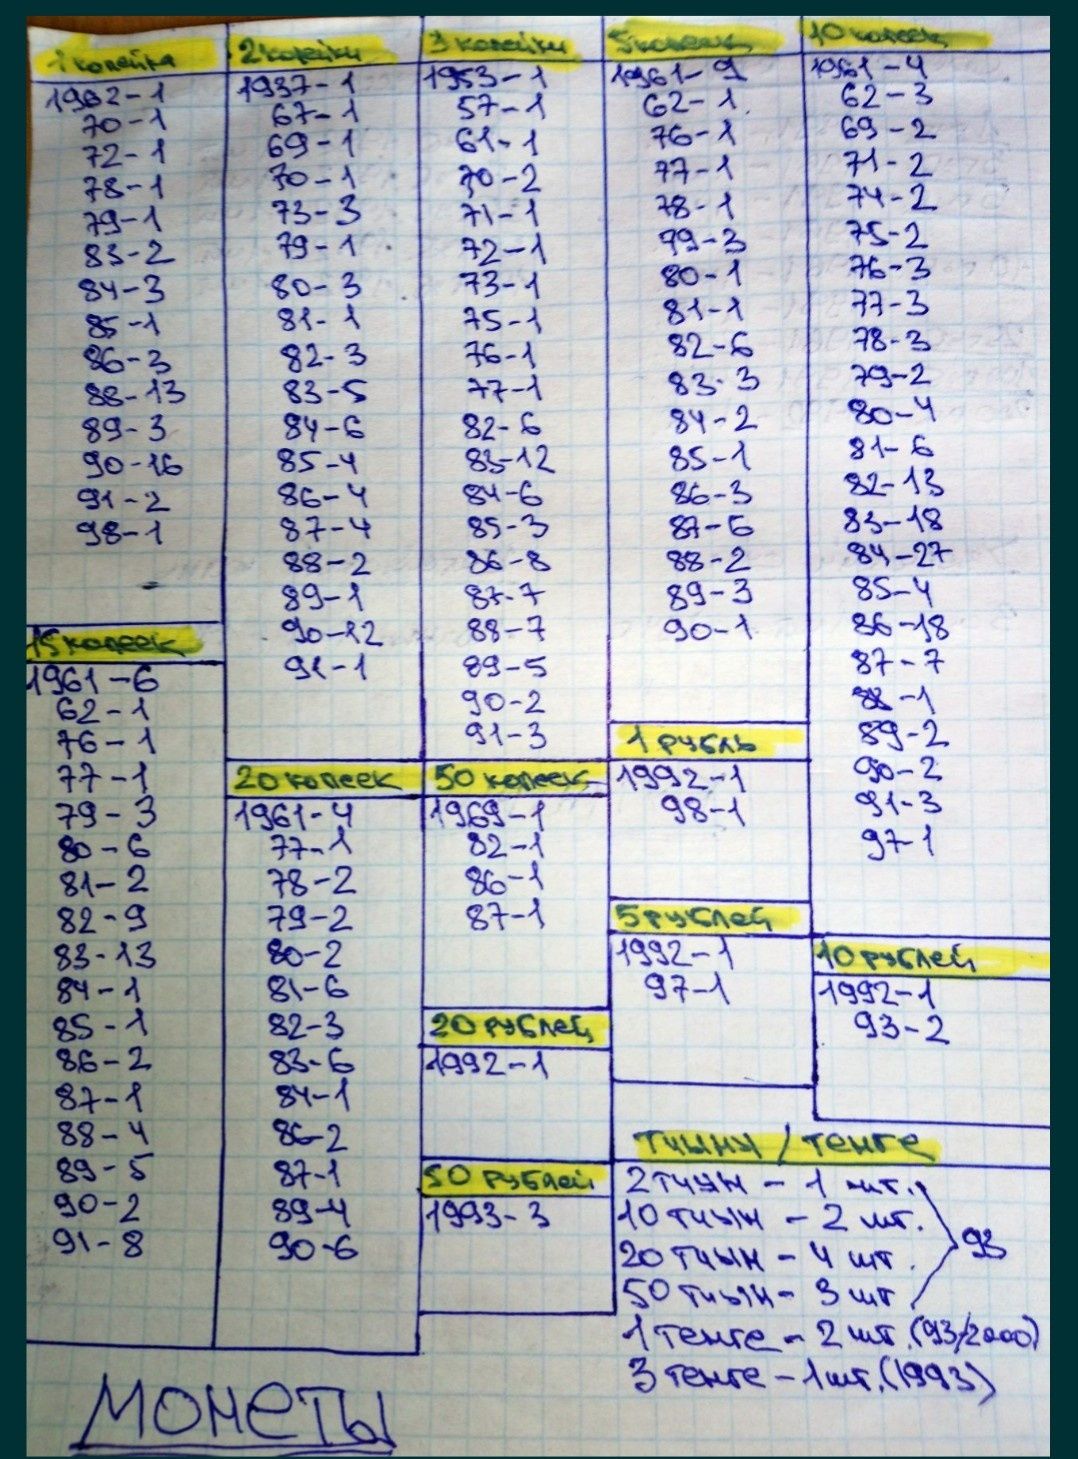 1 копейка
1962-1
70-1
72-1
78-1
79-1
83-2
84-3
85-1
86-3
88-13
89-3
90-16
91-2
98-1
15 копеек
1961-6
62-1
76-1
77-1
79-3
80-6
81-2
82-9
83-13
84-1
85-1
86-2
87-1
88-4
89-5
90-2
91-8
2 копейки
1937-1
67-1
69-1
70-1
73-3
79-1
80-3
81-1
82-3
83-5
84-6
85-4
86-4
87-4
88-2
89-1
90-12
91-1
20 копеек
1961-4
77-1
78-2
79-2
80-2
81-6
82-3
83-6
84-1
86-2
87-1
89-4
90-6
3 копейки
1953-1
57-1
61-1
70-2
71-1
72-1
73-1
75-1
76-1
77-1
82-6
83-12
84-6
85-3
86-8
87-7
88-7
89-5
90-2
91-3
50 копеек
1969-1
82-1
86-1
87-1
20 рублей
1992-1
50 рублей
1993-3
5 копеек
1961-9
62-1
76-1
77-1
78-1
79-3
80-1
81-1
82-6
83-3
84-2
85-1
86-3
87-6
88-2
89-3
90-1
1 рубль
1992-1
98-1
5 рублей
1992-1
97-1
10 копеек
1961-4
62-3
69-2
71-2
74-2
75-2
76-3
77-3
78-3
79-2
80-4
81-6
82-13
83-18
84-27
85-4
86-18
87-7
88-1
89-2
90-2
91-3
97-1
10 рублей
1992-1
93-2
тиыны / тенге
2 тиын - 1 шт.
10 тиын - 2 шт.
20 тиын - 4 шт.
50 тиын - 3 шт
93
1 тенге - 2 шт. (93/2000)
3 тенге - 1 шт. (1993)
МОНЕТЫ